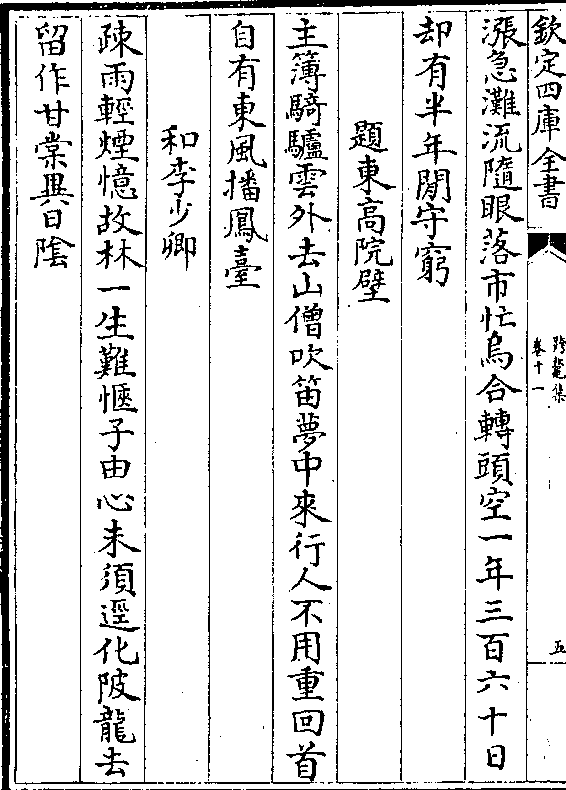 欽定四庫全書
跨鼇集
卷十一
五
漲急灘流隨眼落市忙烏合轉頭空一年三百六十日
却有半年閒守窮
題東髙院壁
主簿騎驢雲外去山僧吹笛夢中來行人不用重回首
自有東風播鳳臺
和李少卿
疎雨輕煙憶故林一生難愜子由心未須遥化陂龍去
留作甘棠異日隂